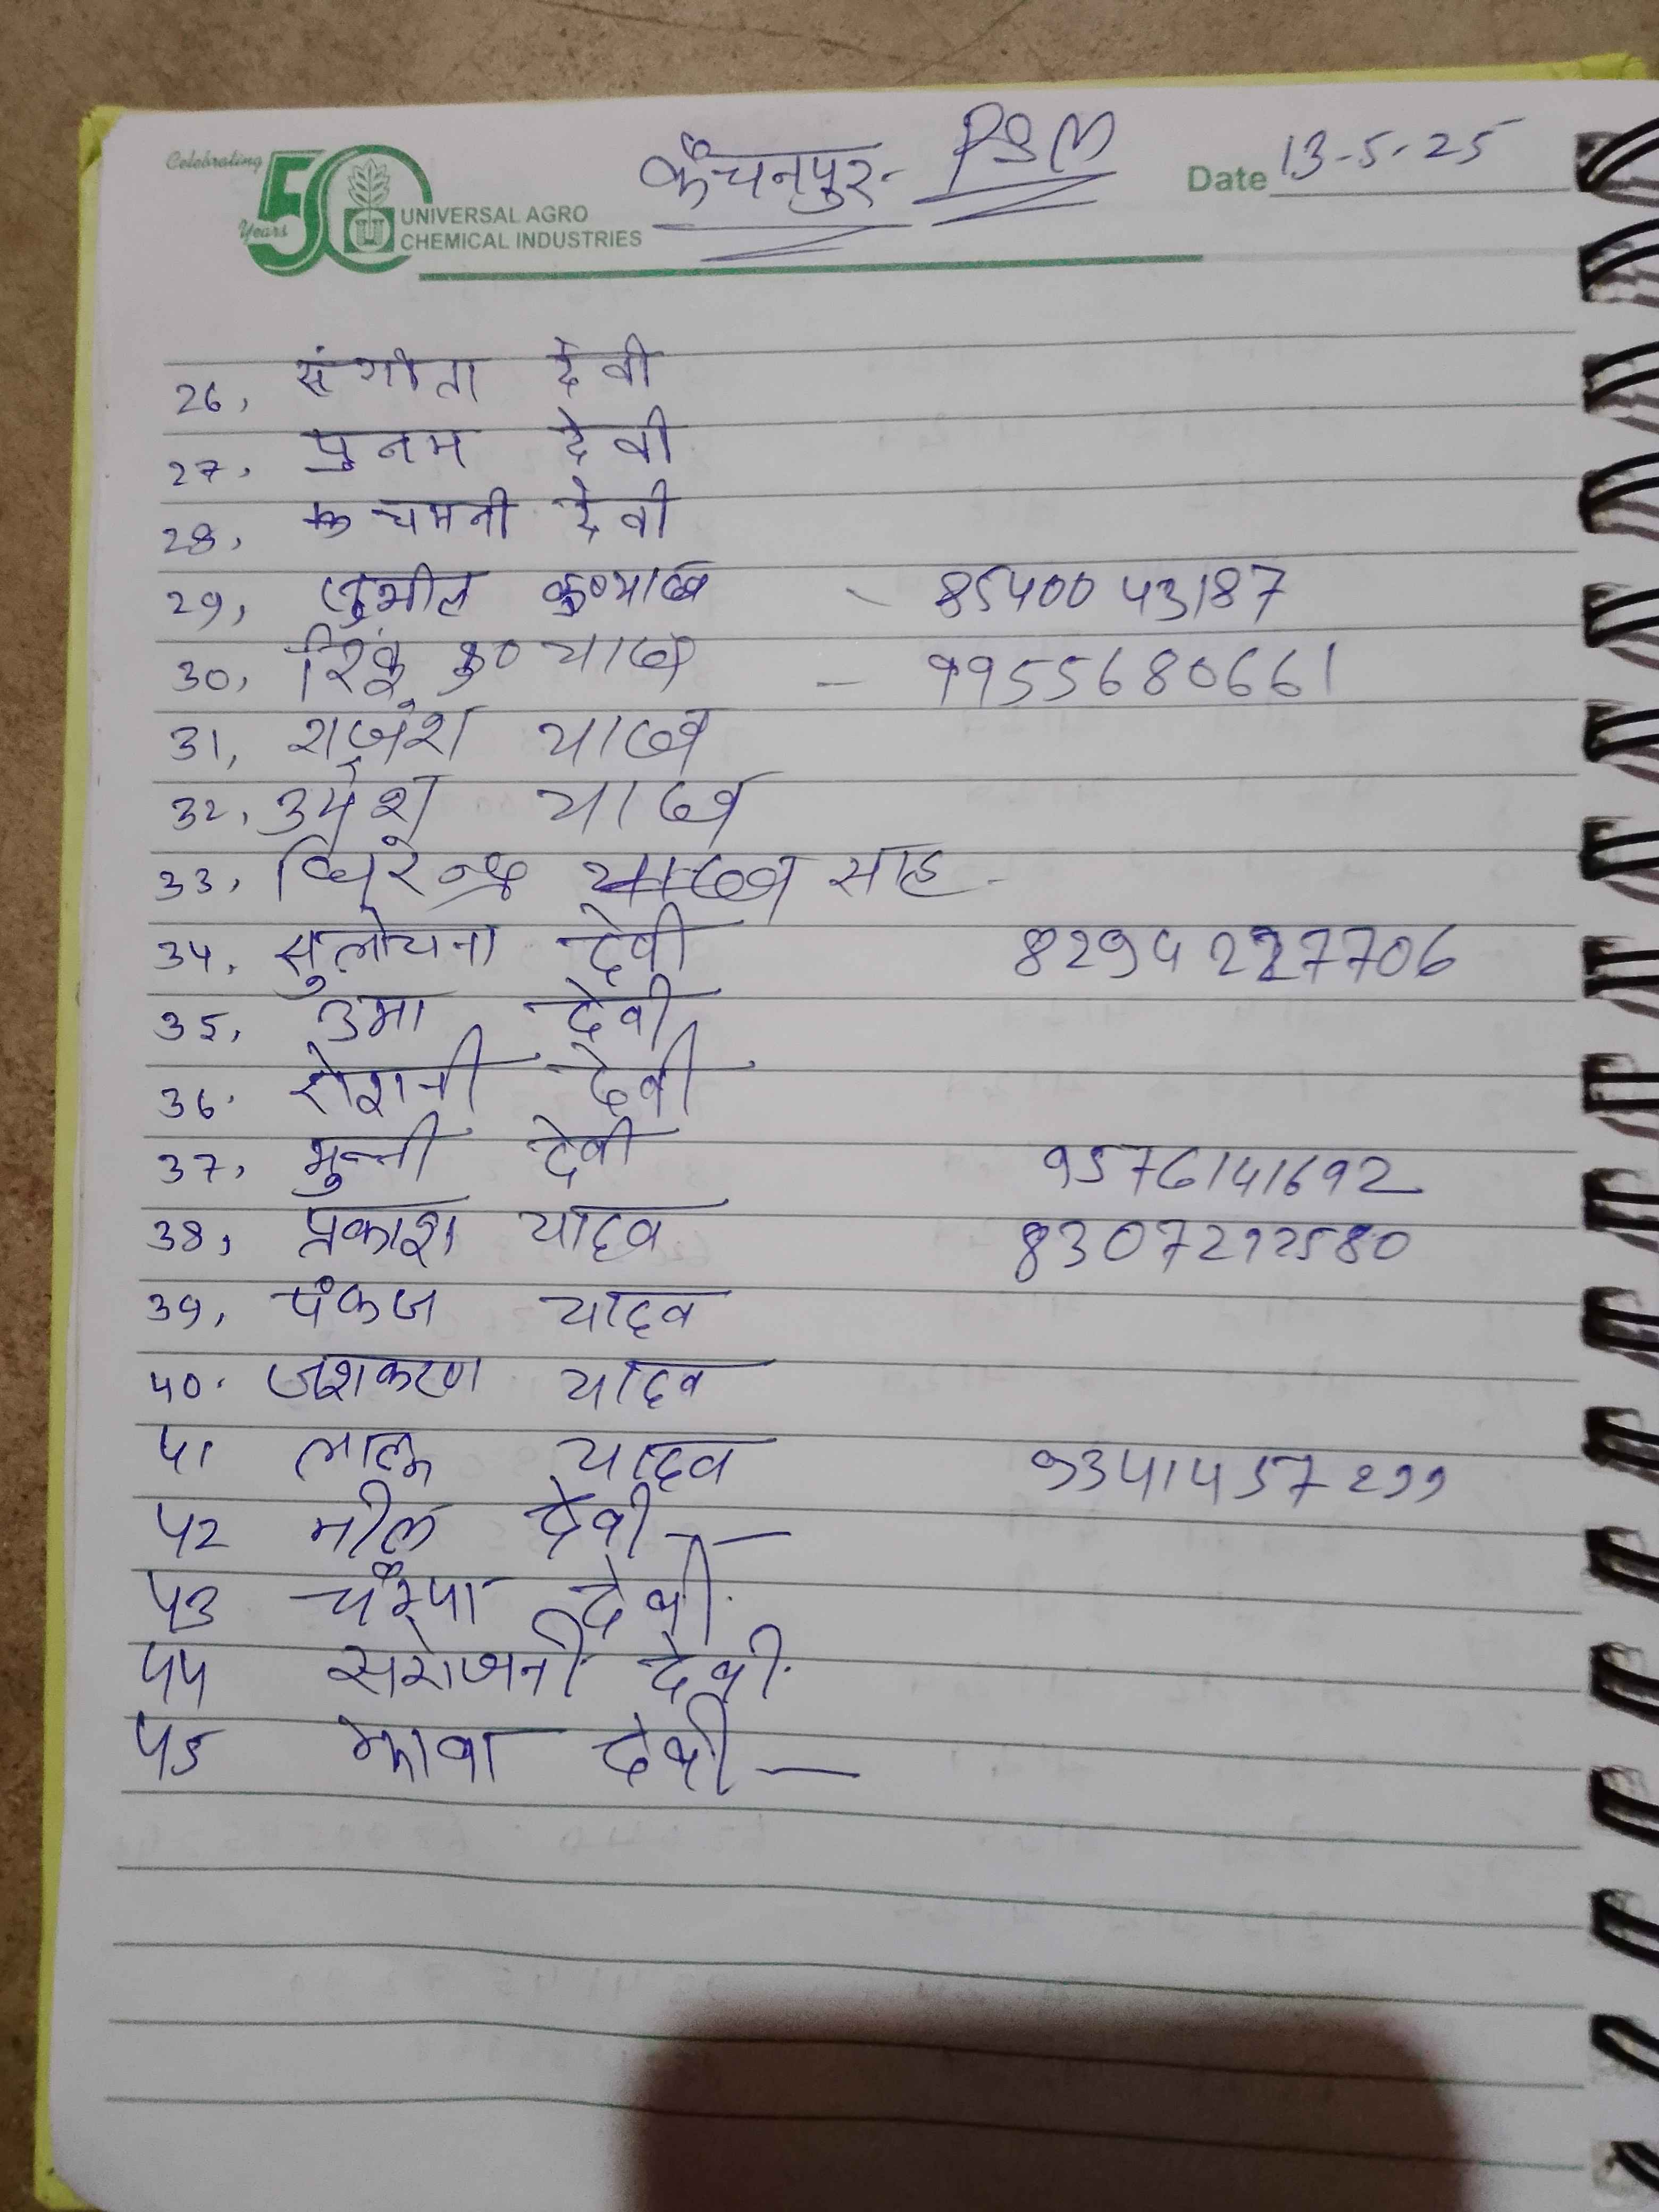 Celebrating 50 Years
UNIVERSAL AGRO
CHEMICAL INDUSTRIES
कँचनपुर - PSM
Date 13-5-25
26, संगीता देवी
27, पुनम देवी
28, कचमनी देवी
29, सुशील कु० यादव - 8540043187
30, रिंकू कु० यादव - 9955680661
31, राजेश यादव
32, उमेश यादव
33, धिरेन्द्र यादव साह -
34, सुलोचना देवी 8294227706
35, उमा देवी
36. रोशनी देवी
37, मुन्नी देवी 9576141692
38, प्रकाश यादव 8307292580
39, पंकज यादव
40. जशकरण यादव
41 लालू यादव 9341457299
42 नीलू देवी -
43 चँम्पा देवी.
44 सरोजनी देवी.
45 देवी -